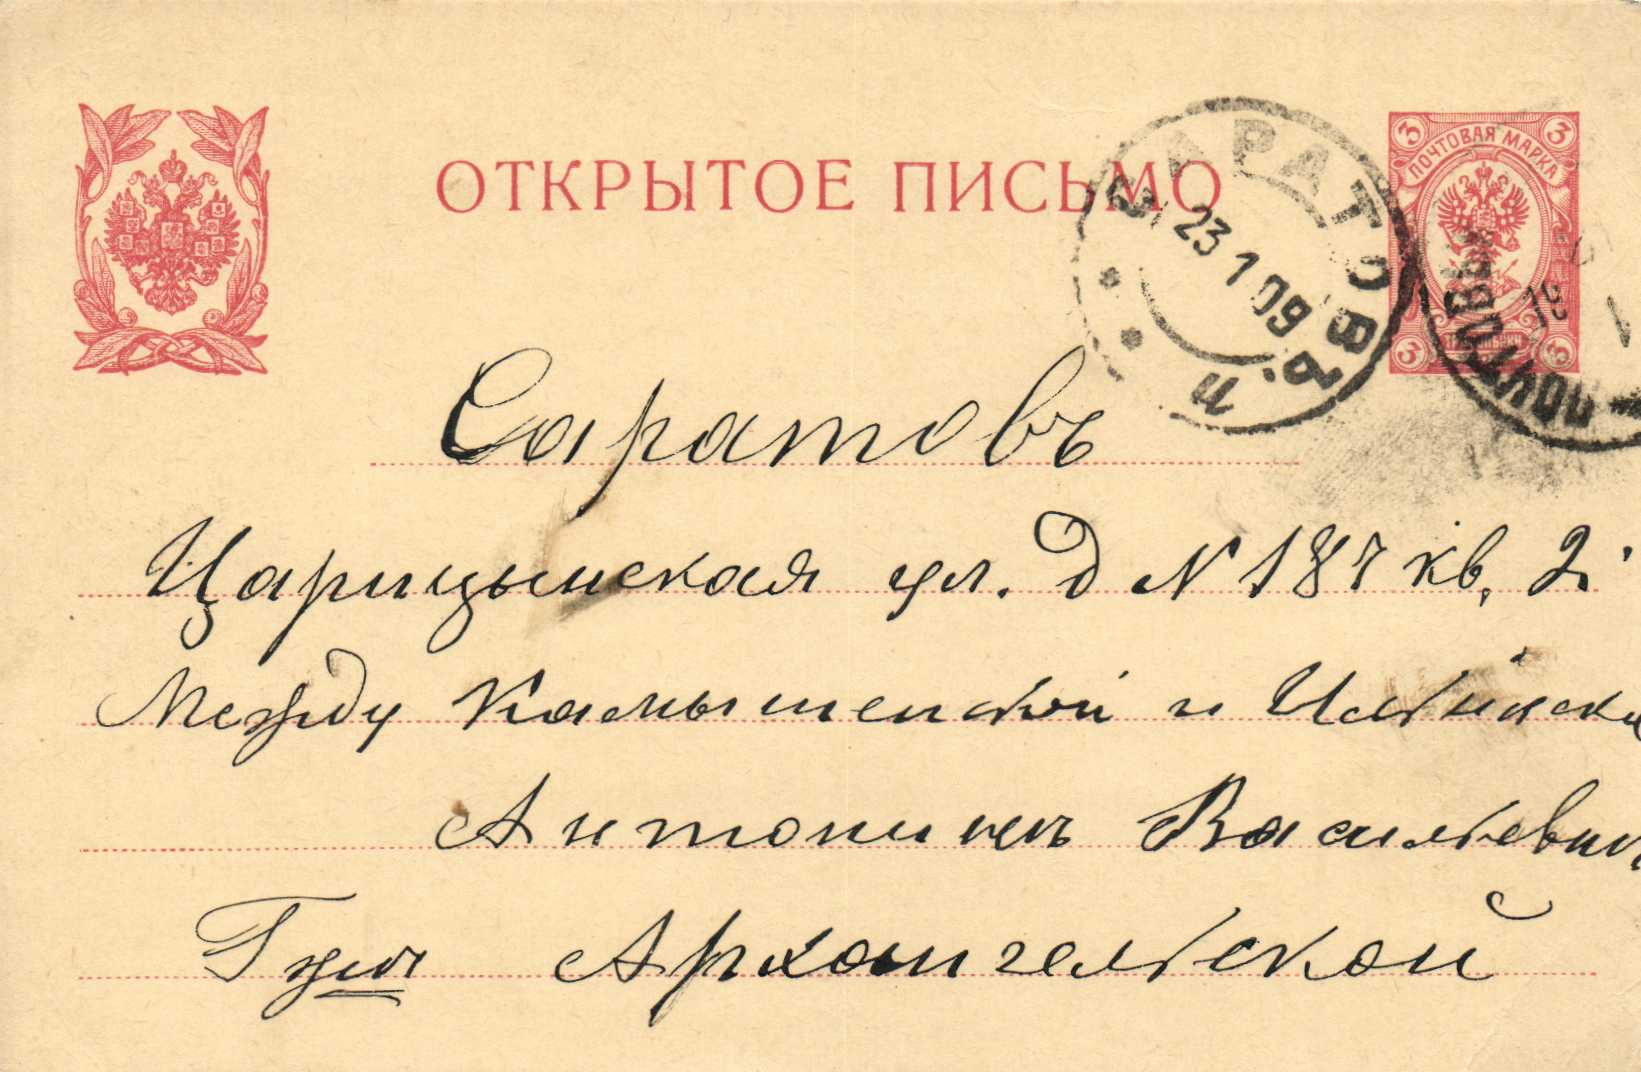 ОТКРЫТОЕ ПИСЬМО
ПОЧТОВАЯ МАРКА
3 3
3 3
САРАТОВЪ
23 1 09
ПОЧТОВЫ
Саратовъ
Царицынская ул. д № 187 кв. 2.
Между Камышенской и Ильинск
Антонинѣ Васильевн
Архангельской